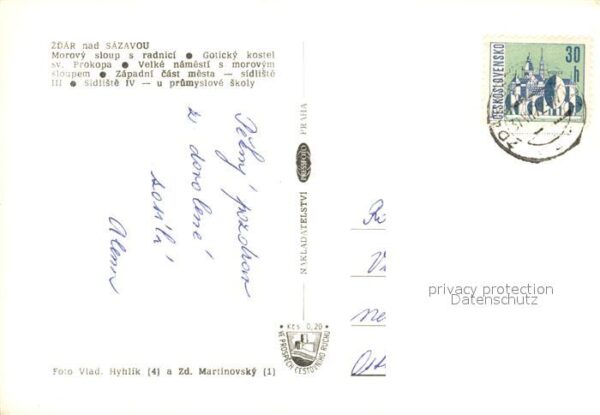 ŽĎÁR nad SÁZAVOU
Morový sloup s radnicí ● Gotický kostel
sv. Prokopa ● Velké náměstí s morovým
sloupem ● Západní část města — sídliště
III ● Sídliště IV — u průmyslové školy
ČESKOSLOVENSKO
30 h
NAKLADATELSTVÍ PRESSFOTO PRAHA
Pěkný pozdrav
z dovolené
posílá
Alena
privacy protection
Datenschutz
Kčs 0,20
VE PROSPĚCH CESTOVNÍHO RUCHU
Foto Vlad. Hyhlík (4) a Zd. Martinovský (1)